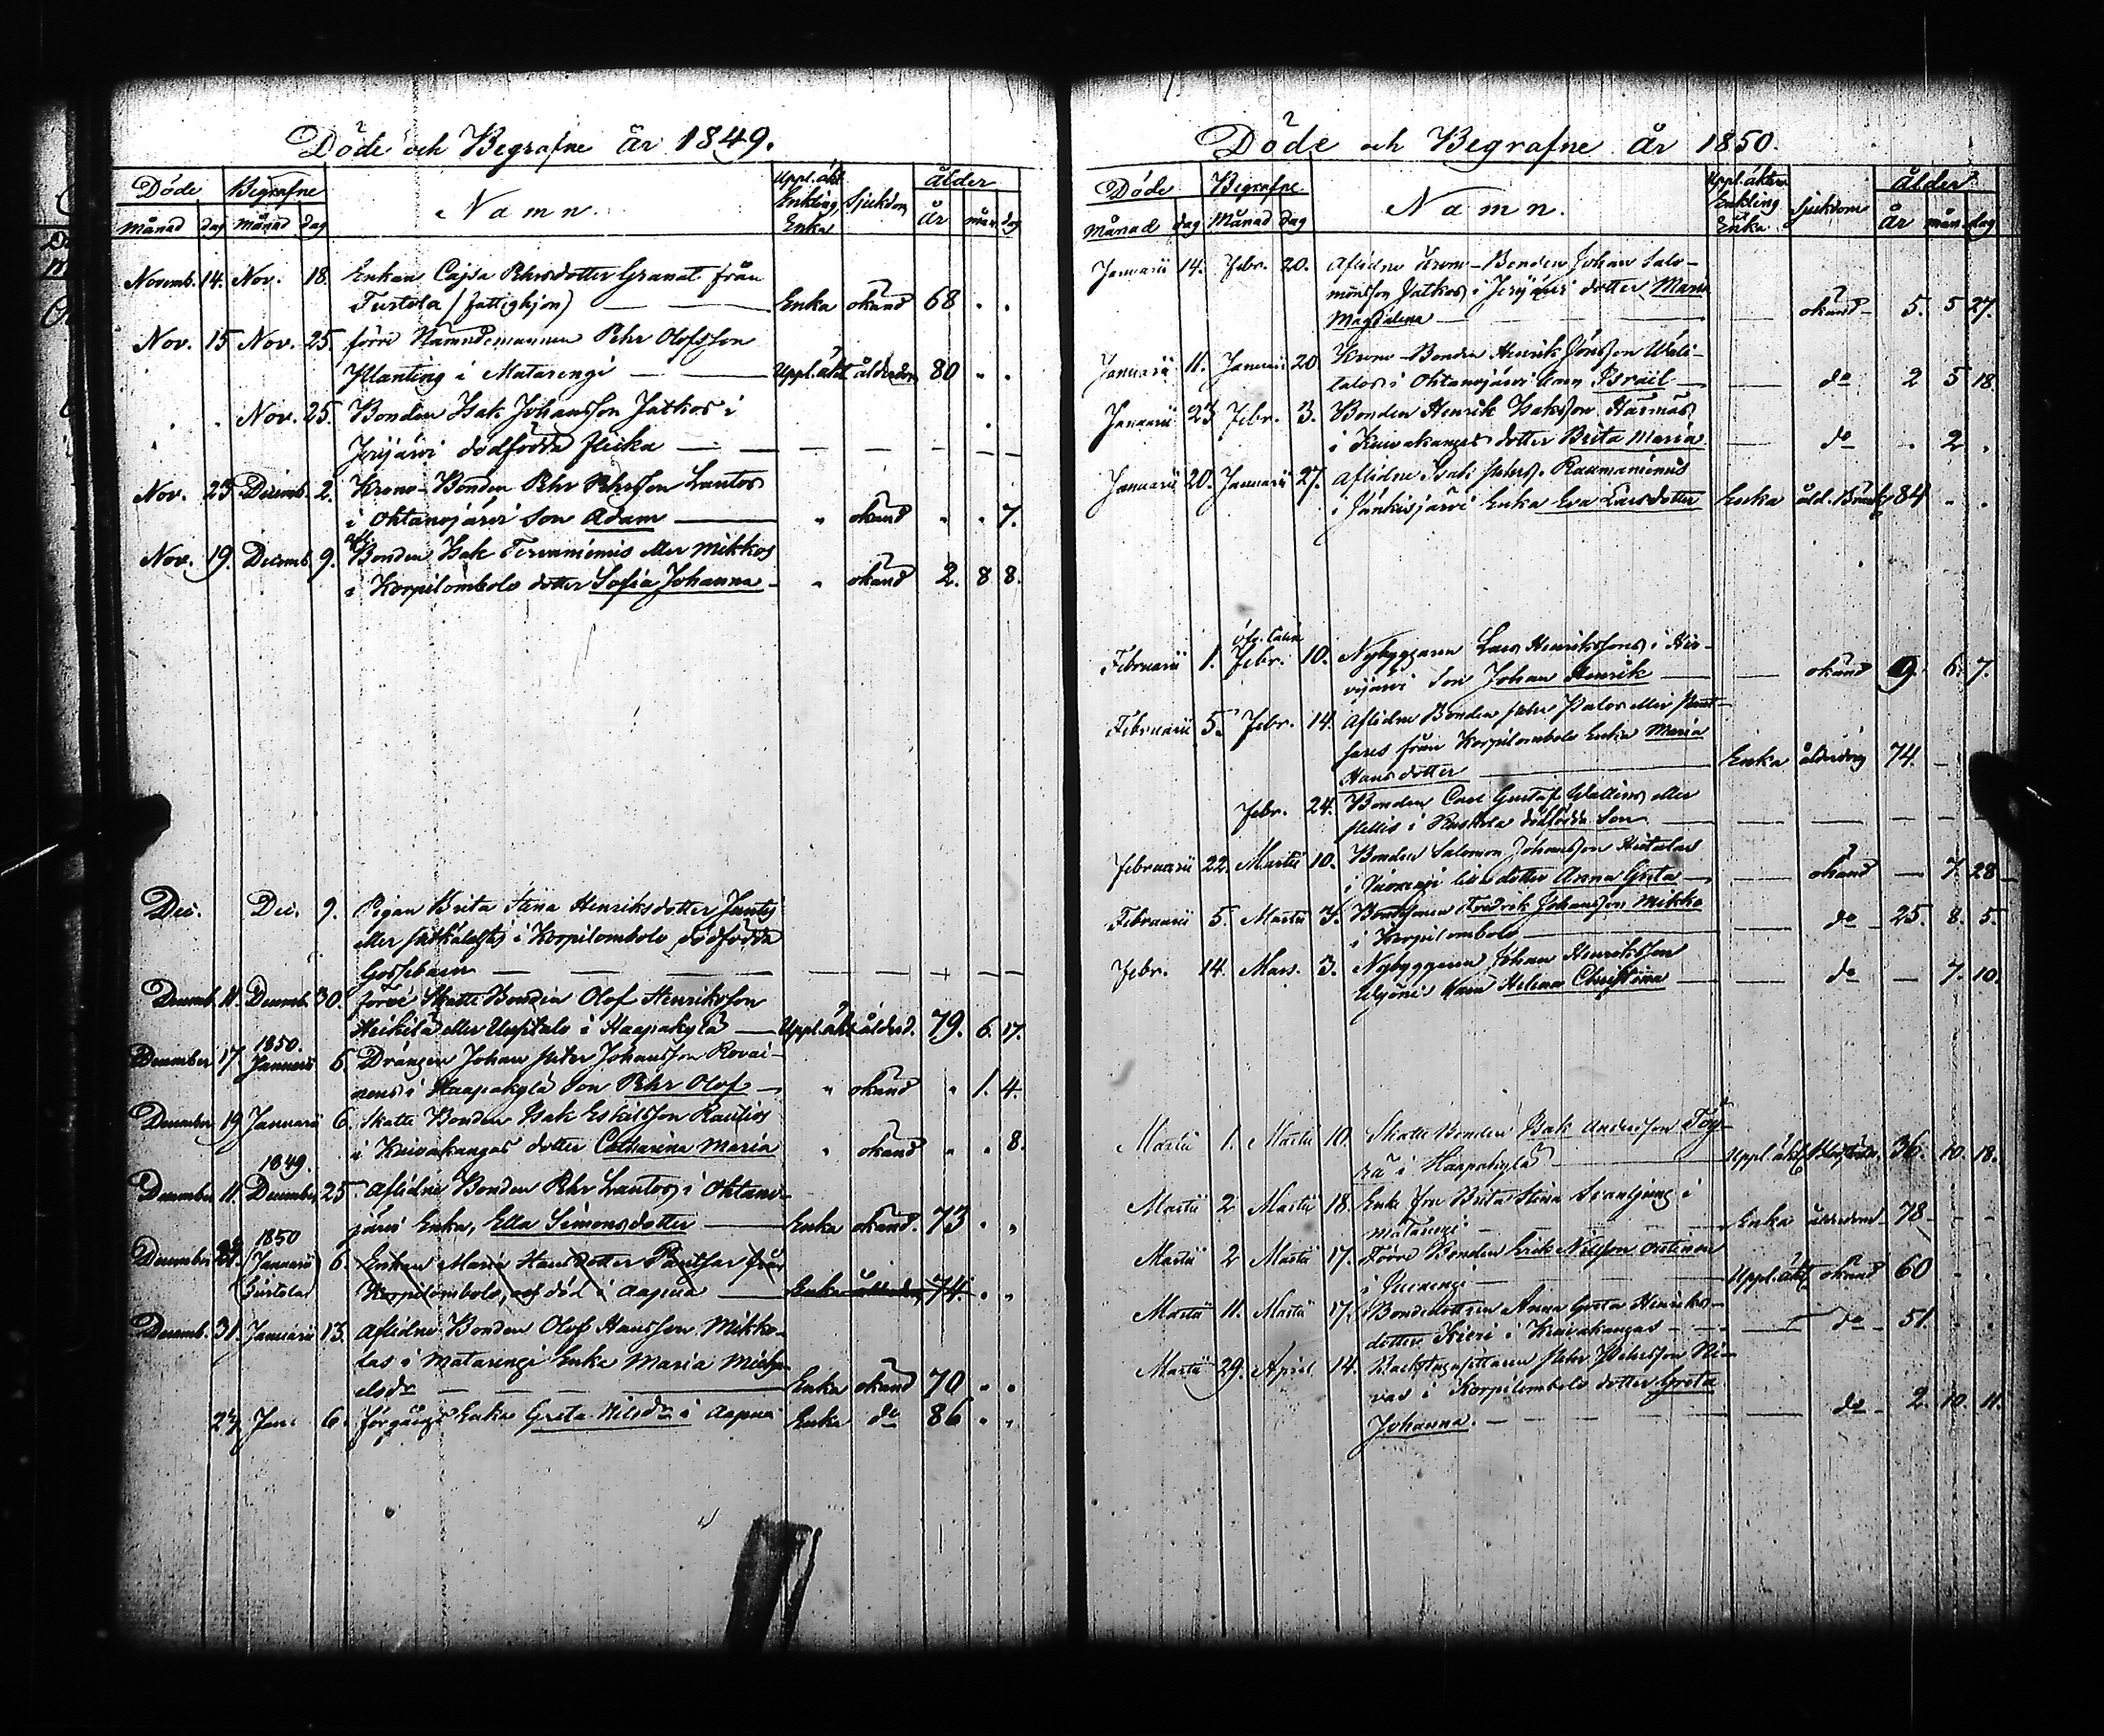 Döde och Begrafne år 1849.
Döde Begrafne Namn. Uppl. äkt. Enkling, Enka Sjukdom ålder
månad dag månad dag år mån. dag
Novemb. 14. Nov. 18. Enkan Cajsa Pehrsdotter Granat från
Turtola (fattighjon) — Enka okänd 68 . .
Nov. 15 Nov. 25. förre Nämndemannen Pehr Olofsson
Planting i Matarengi — Uppl. äkt ålderdom 80 . .
. . Nov. 25. Bonden Isak Johansson Jatkos i
Jerijärvi dödfödda flicka — — — — — —
Nov. 25 Decemb. 2. Krono-Bonden Pehr Pehrsson Lantos
i Ohtanajärvi son Adam — " okänd " . 7.
Nov. 19. Decemb. 9. afl. Bonden Isak Tervaniemis eller Mikkos
i Korpilombolo dotter Sofia Johanna — " okänd 2. 8 8.
Dec. Dec. 9. Pigan Brita Stina Henriksdotter
eller i Korpilombolo dödfödda
Gossebarn — — — — — — —
Decemb. 11. Decemb. 30. förre Skatte Bonden Olof Henriksson
Heikilä eller i Haapakylä — Uppl. äkt ålderd. 79. 6. 17.
1850.
December 17. Januarii 6. Drängen Johan Peter Johansson Rovai-
nens i Haapakylä son Pehr Olof — " okänd " 1. 4.
December 19 Januarii 6. Skatte Bonden Isak Eskilsson Rautios
i Kuivakangas dotter Catharina Maria " okänd " . 8.
1849.
December 11. December 25. Aflidne Bonden Pehr Lantos i Ohtana-
järvi Enka, Ella Simonsdotter — Enka okänd. 73 . "
1850
December Januarii 6. Enkan Maria Hansdotter Panthar från
(Turtola) Korpilombolo, och död i Aapua — Enka ålderdom 74. . "
Decemb. 31. Januarii 13. Aflidne Bonden Olof Hansson Mikko-
las i Matarengi Enka Maria Micha-
elsdr — — — Enka okänd 70 . .
27 Jan. 6. Förgångs Enka Greta Nilsdr i Aapua Enka do 86 . .
Döde och Begrafne år 1850.
Döde Begrafne Namn. Uppl. äkten. Enkling Enka Sjukdom ålder
Månad dag Månad dag år mån. dag
Januarii 14. Febr. 20. Aflidne Krono-Bonden Johan Salo-
monsson Jatkos i Jerijärvi dotter Maria
Magdalena — — okänd — 5. 5 27.
Januarii 11. Januarii 20 Krono-Bonden Henrik Jönsson Wäli-
talos i Ohtanajärvi son Israil — — do 2 5 18.
Januarii 23 Febr. 3. Bonden Henrik Isaksson
i Kuivakangas dotter Brita Maria — do . 2 .
Januarii 20. Januarii 27. Aflidne Isak Peters. Raumaniemis
i Jänkisjärvi Enka Eva Larsdotter Enka åld. 84 . .
Februarii 1. Febr. 10. Nybyggaren Lars Henrikssons i Hir-
vijärvi son Johan Henrik — — okänd 9. 6. 7.
Februarii 5. Febr. 14. Aflidne Bonden Peter Palos eller Pant-
sares från Korpilombolo Enka Maria
Hans dotter — Enka ålderdom 74. —
Febr. 24. Bonden Carl Gustaf Wallins eller
i Ruskola dödfödda son. — — — — —
Februarii 22. Martii 10. Bonden Salomon Johansson Hietalas
i lilla dotter Anna Greta — — okänd — 7. 28
Februarii 5. Martii 3. Bondsonen Fredrik Johansson Mikko
i Korpilombolo — — do — 25. 8. 5.
Febr. 14. Mars. 3. Nybyggaren Johan Henriksson
Helena Christina — — do — 7. 10.
Martii 1. Martii 10. Skatte Bonden Isak Andersson Töy-
rä i Haapakylä — Uppl. äkt 36. 10. 18.
Martii 2 Martii 18. Enke fru Brita Stina i
Matarengi — — Enka ålderdom — 78 — —
Martii 2 Martii 17. Förre Bonden Erik Nilsson
i — Uppl. äkt okänd 60 . .
Martii 11. Martii 17. Bondedottren Anna Greta Henriks-
dotter Kieri i Kuivakangas — — — do — 51. . .
Martii 29. April 14. Backstugusittaren Pehr Pehrsson Ni-
vas i Korpilombolo dotter Greta
Johanna. — — — do — 2. 10. 11.